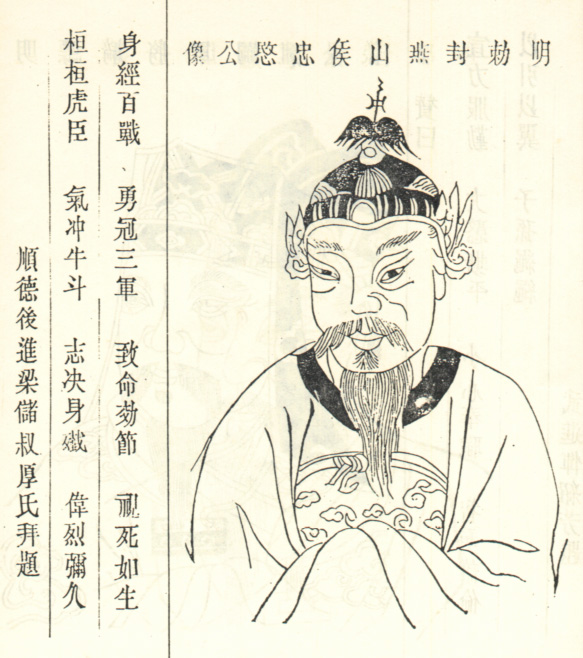 明勅封燕山侯忠愍公像
身經百戰、勇冠三軍 致命効節 視死如生
桓桓虎臣 氣冲牛斗 志决身殱 偉烈彌久
順德後進梁儲叔厚氏拜題